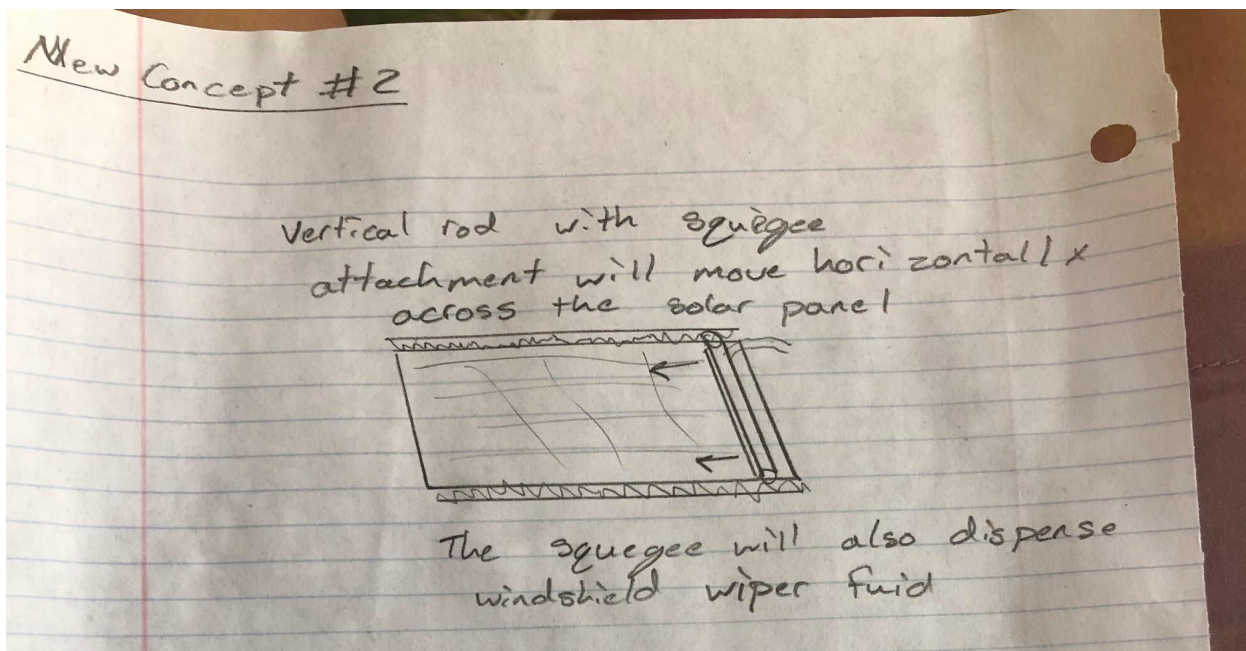 New Concept #2
Vertical rod with squegee
attachment will move horizontally
across the solar panel
The squegee will also dispense
windshield wiper fuid